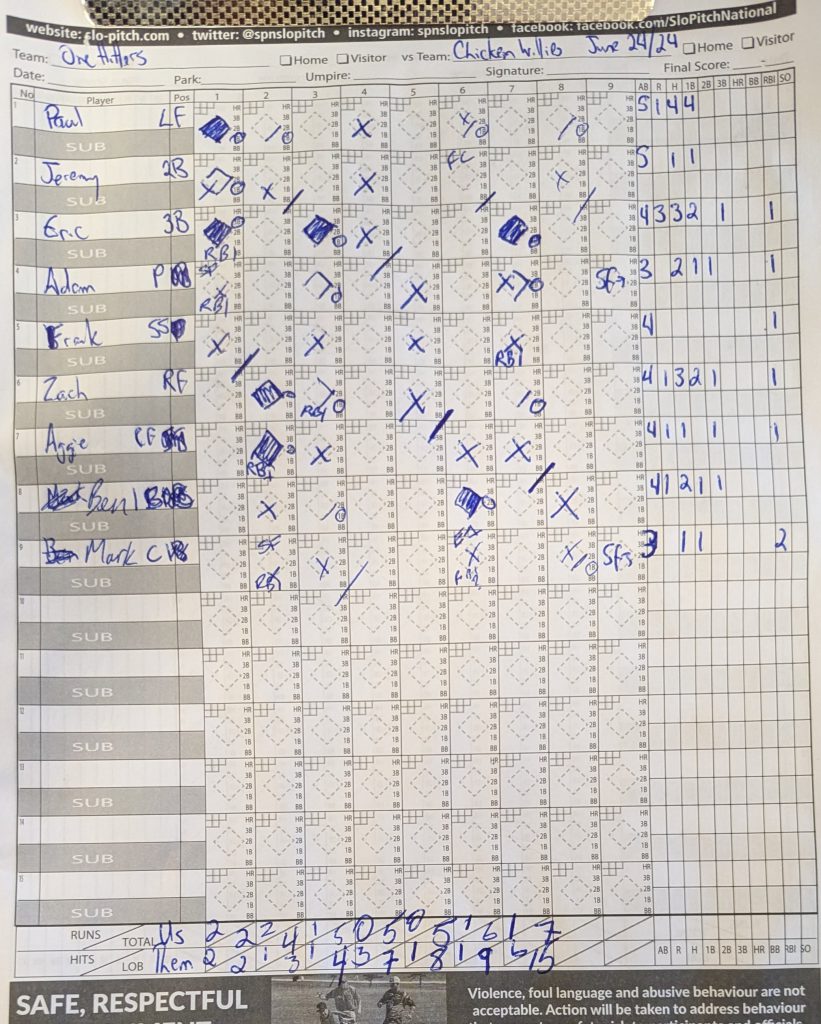 website: slo-pitch.com • twitter: @spnslopitch • instagram: spnslopitch • facebook: facebook.com/SloPitchNational
Team: One Hitters Home Visitor vs Team: Chicken Willies June 24/24 Home Visitor
Date: Park: Umpire: Signature: Final Score: -
No Player Pos 1 2 3 4 5 6 7 8 9 AB R H 1B 2B 3B HR BB RBI SO
1 Paul LF 5 1 4 4
SUB
2 Jeremy 2B FC 5 1 1
SUB
3 Eric 3B 4 3 3 2 1 1
SUB RBI
4 Adam P SF SF 3 2 1 1 1
SUB RBI
5 Frank SS 4 1
SUB RBI
6 Zach RF 4 1 3 2 1 1
SUB RBI
7 Aggie CF 4 1 1 1 1
SUB RBI
8 Ben 4 1 2 1 1
SUB
9 Mark C SF SF 3 1 1 2
SUB RBI
10
SUB
11
SUB
12
SUB
13
SUB
14
SUB
15
SUB
RUNS TOTAL Us 2 2 2 4 1 5 0 5 0 5 1 6 1 7
HITS LOB Them 2 2 1 3 1 4 3 7 1 8 1 9 6 15 AB R H 1B 2B 3B HR BB RBI SO
SAFE, RESPECTFUL
Violence, foul language and abusive behaviour are not
acceptable. Action will be taken to address behaviour